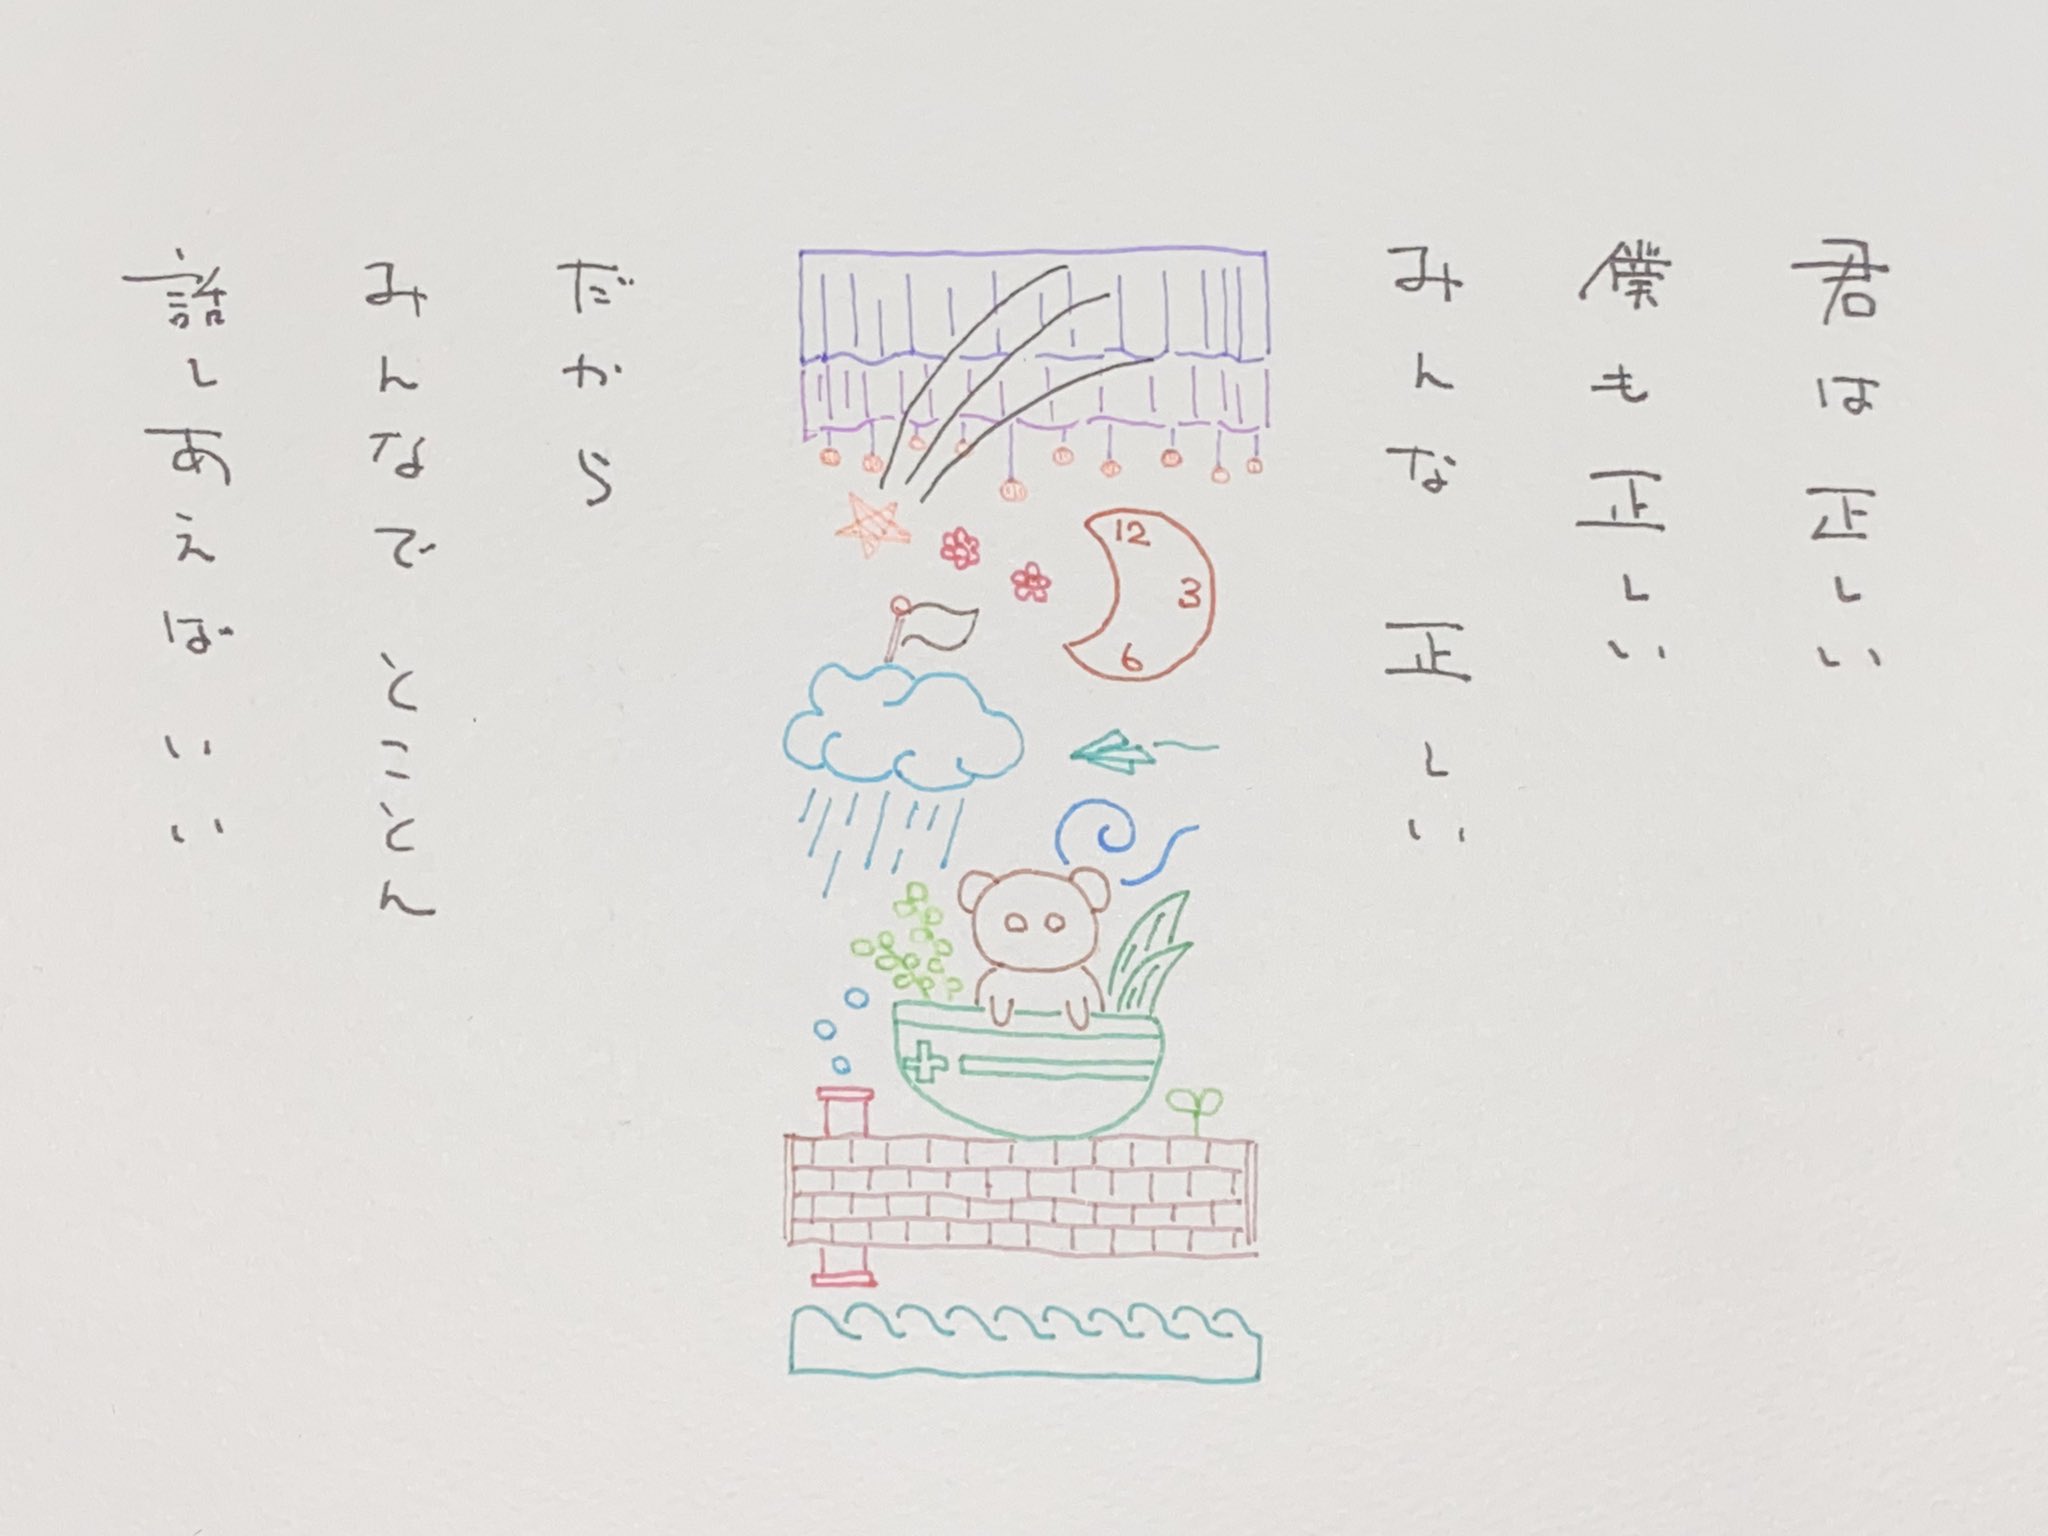 君は正しい
僕も正しい
みんな 正しい
12
3
6
だから
みんなで とことん
話しあえばいい